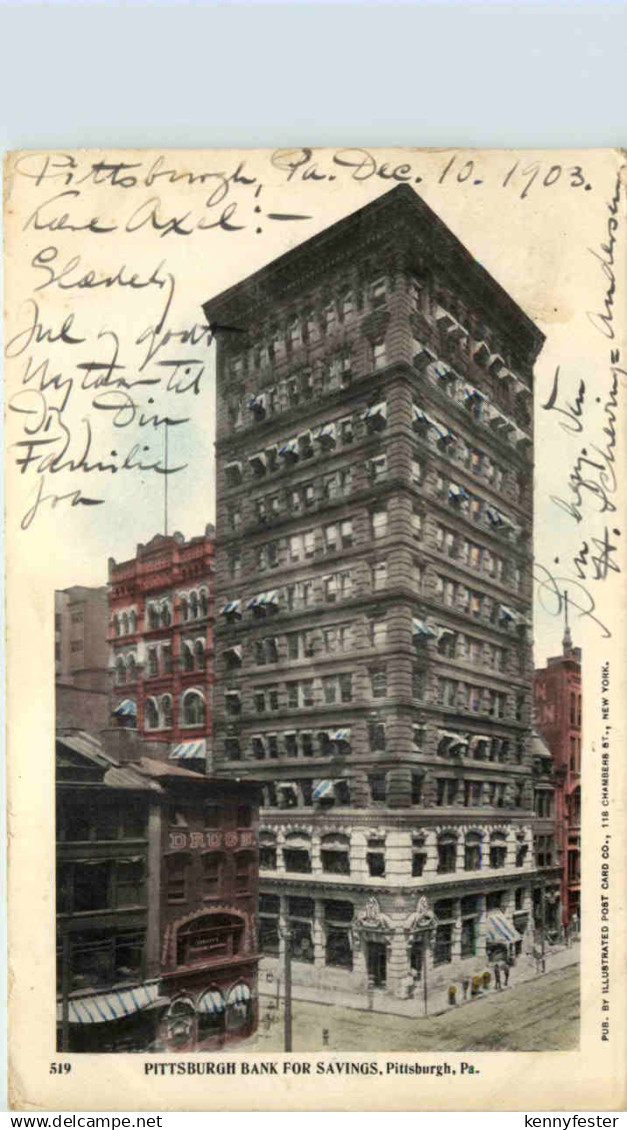 Pittsburgh, Pa. Dec. 10. 1903.
Kære Axel :—
Glædelig
Jul og godt
Nytaar til
Dig, Din
Familie
fra
Din hgv. Van
H. Schevinge Andersen
DRUGS
PUB. BY ILLUSTRATED POST CARD CO., 118 CHAMBERS ST., NEW YORK.
519 PITTSBURGH BANK FOR SAVINGS, Pittsburgh, Pa.
kennyfester